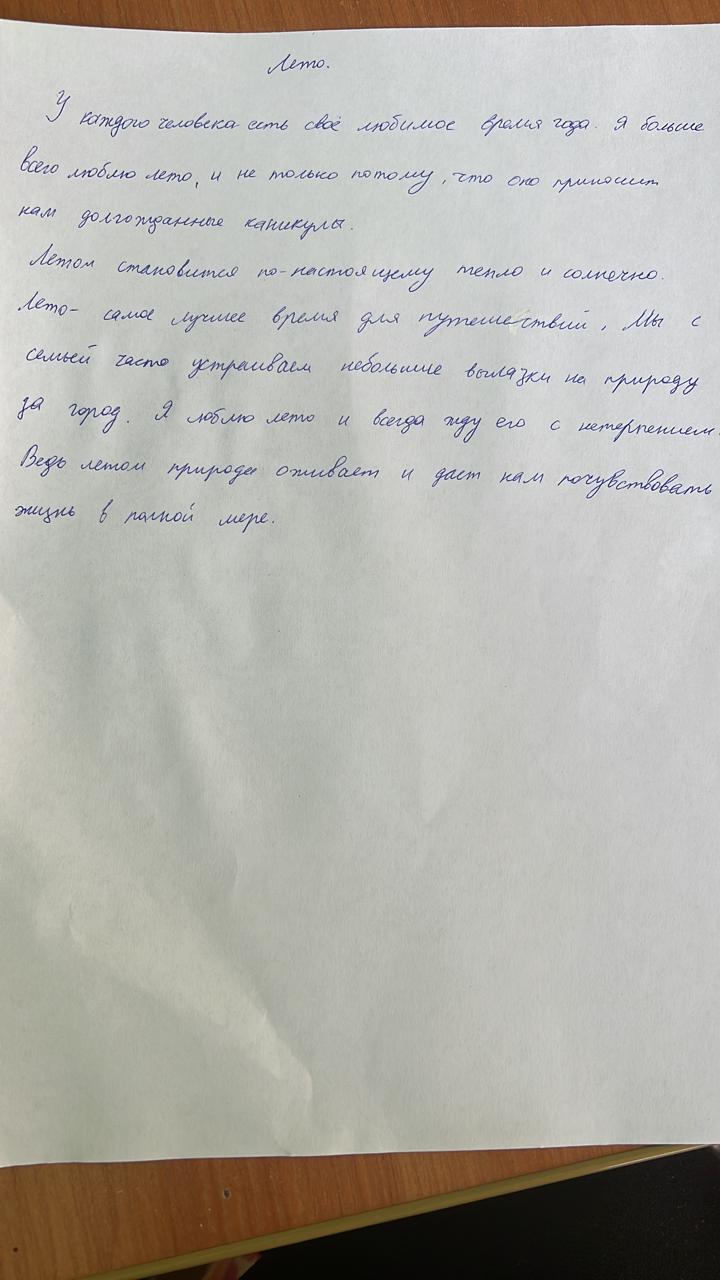 Лето.
У каждого человека есть своё любимое время года. Я больше
всего люблю лето, и не только потому, что оно приносит
нам долгожданные каникулы.
Летом становится по-настоящему тепло и солнечно.
Лето- самое лучшее время для путешествий, Мы с
семьёй часто устраиваем небольшие вылазки на природу
за город. Я люблю лето и всегда жду его с нетерпением.
Ведь летом природа оживает и даёт нам почувствовать
жизнь в полной мере.